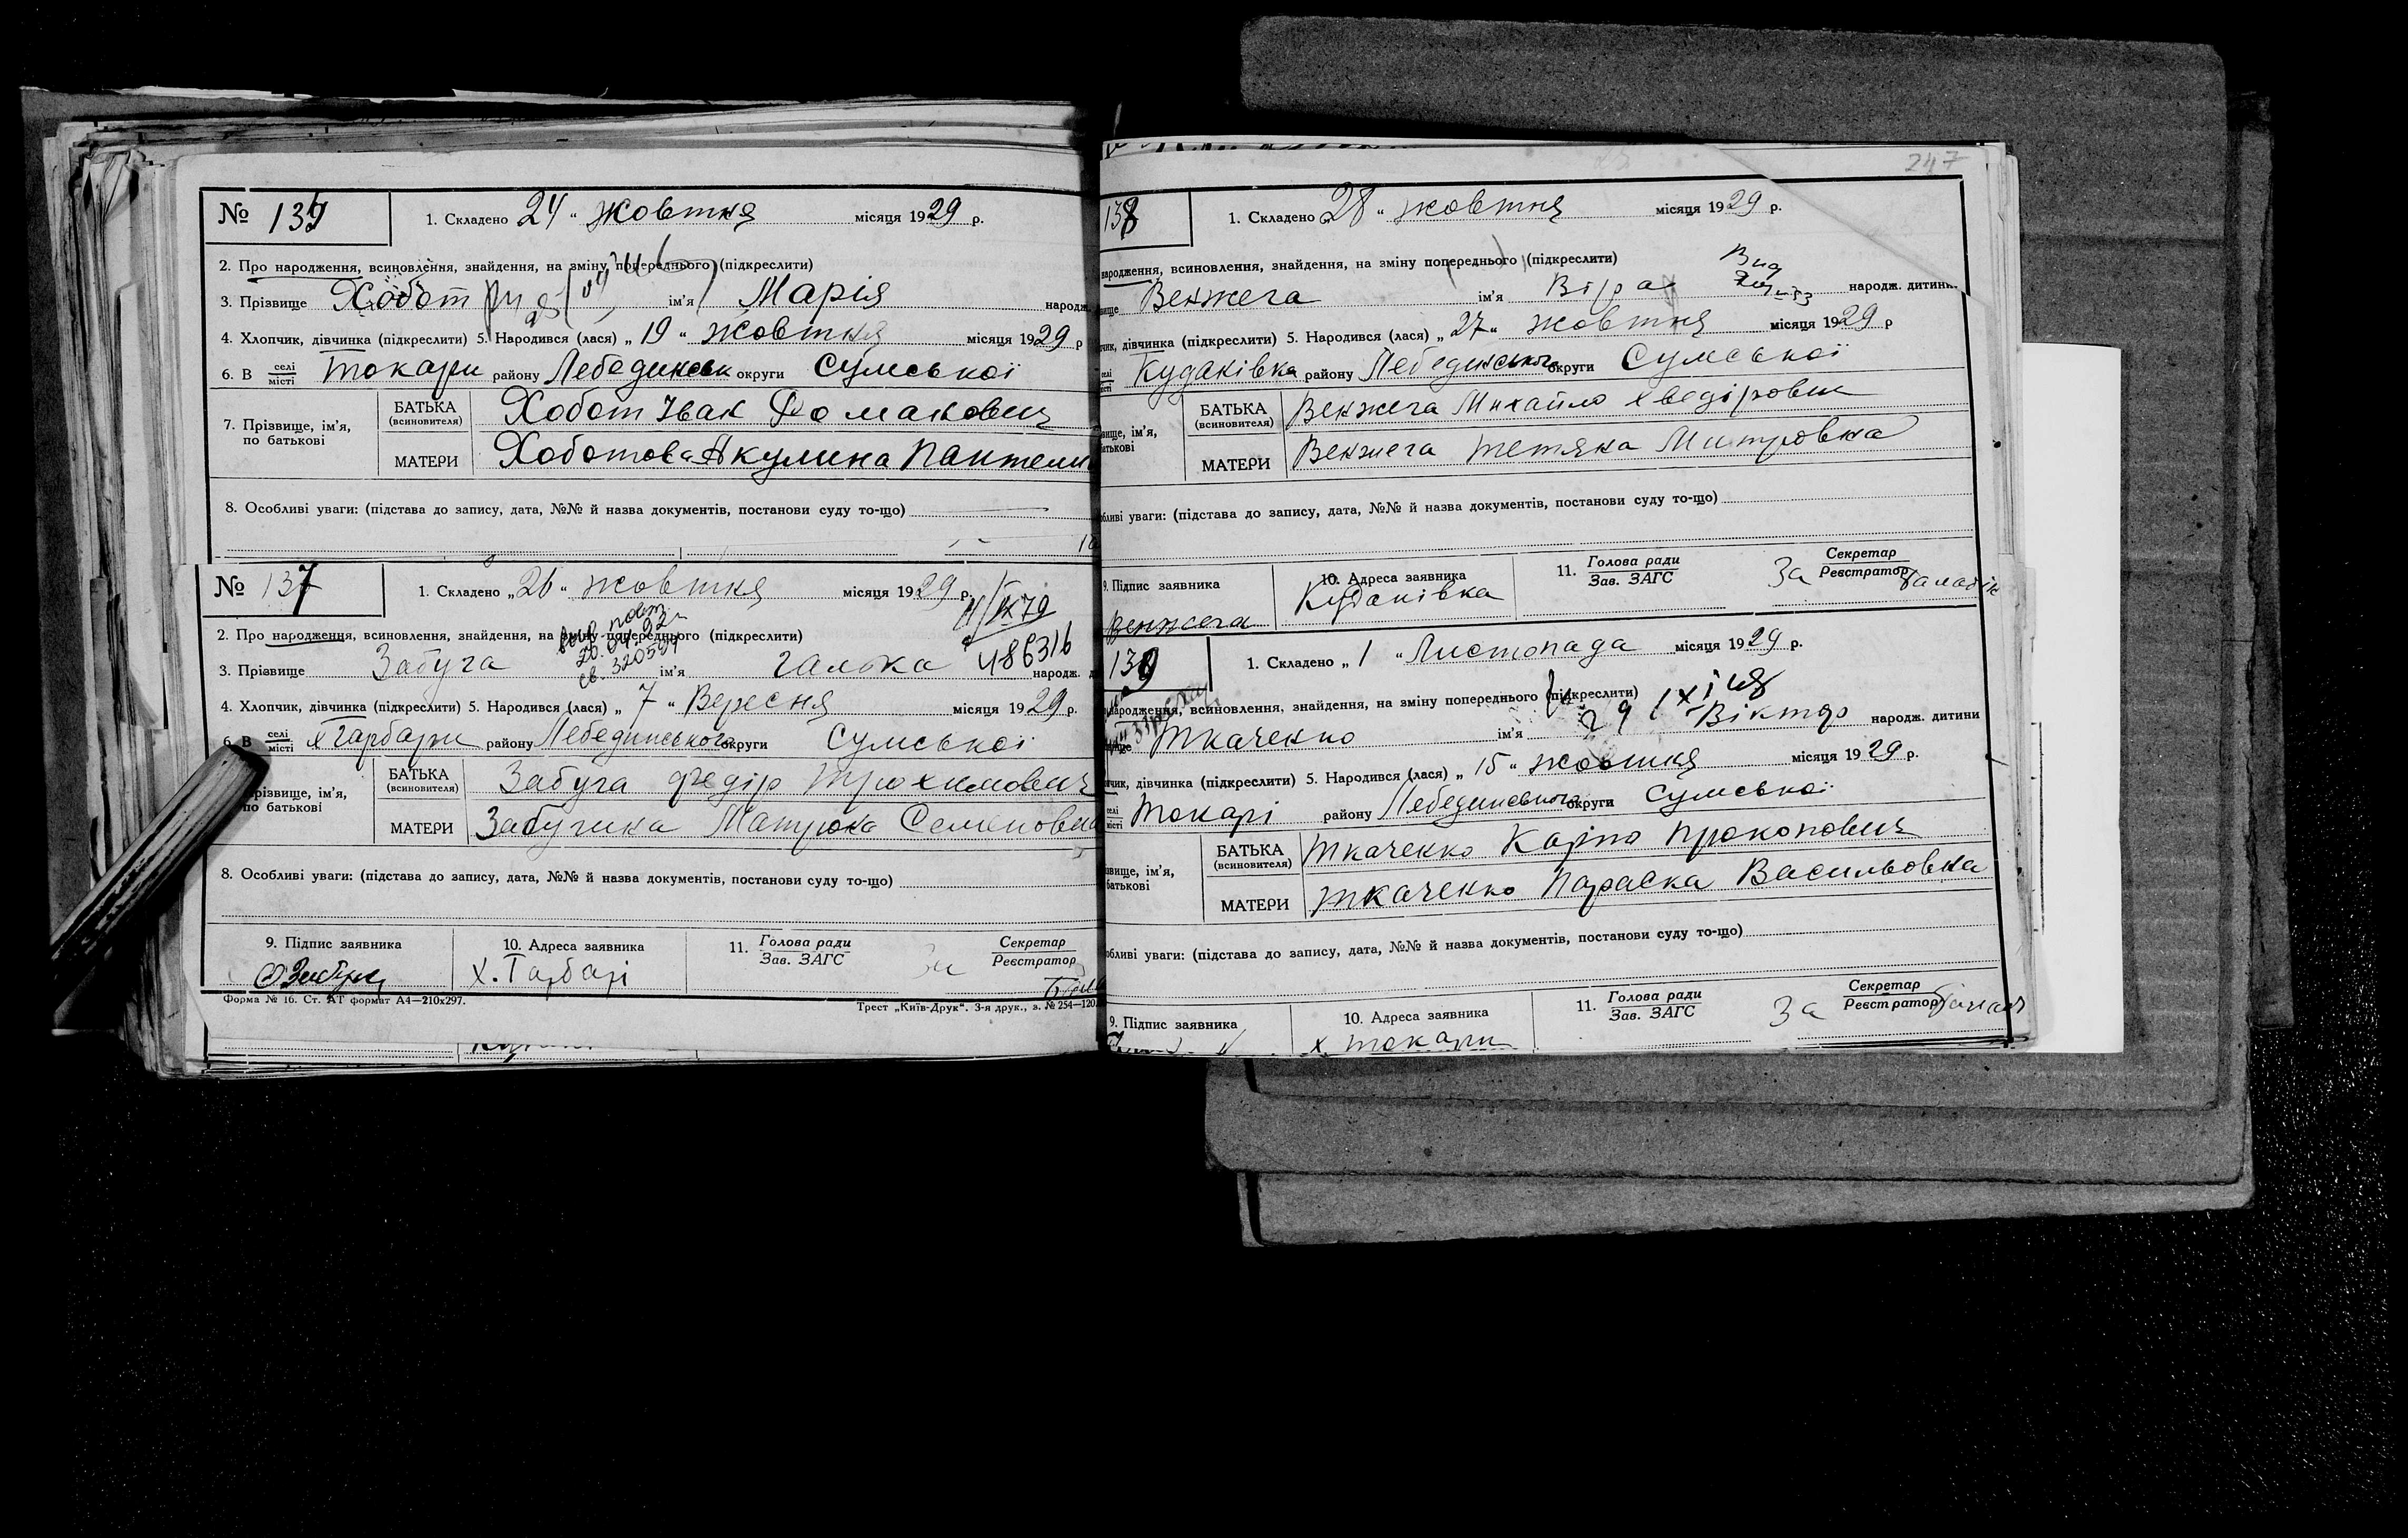 247
№ 135
1. Складено 24 „ жовтня місяця 1929 р.
2. Про народження, всиновлення, знайдення, на зміну попереднього (підкреслити)
3. Прізвище Хобот ім'я Марія народж.
4. Хлопчик, дівчинка (підкреслити) 5. Народився (лася) „ 19 “ жовтня місяця 1929 р
6. В селі місті Токари району Лебединськ округи Сумської
7. Прізвище, ім'я, по батькові
БАТЬКА (всиновителя) Хобот Іван Романович
МАТЕРИ Хоботова Акулина Пантели
8. Особливі уваги: (підстава до запису, дата, №№ й назва документів, постанови суду то-що)
№ 137
1. Складено „26“ жовтня місяця 1929 р.
4/IX 79
2. Про народження, всиновлення, знайдення, на зміну попереднього (підкреслити)
3. Прізвище Забуга ім'я Галька 486316 народж.
4. Хлопчик, дівчинка (підкреслити) 5. Народився (лася) „ 7 “ Вересня місяця 1929 р.
6. В селі місті х Гарбари району Лебединського округи Сумської
різвище, ім'я, по батькові
БАТЬКА (всиновителя) Забуга Федір Трохимович
МАТЕРИ Забугина Матрюна Семеновна
8. Особливі уваги: (підстава до запису, дата, №№ й назва документів, постанови суду то-що)
9. Підпис заявника
10. Адреса заявника х. Гарбарі
11. Голова ради Зав. ЗАГС За Секретар Реєстратор
Форма № 16. Ст. АТ формат А4—210х297.
Трест „Київ-Друк“. 3-я друк., з. № 254—120
138
1. Складено 28 “ жовтня місяця 1929 р.
народження, всиновлення, знайдення, на зміну попереднього (підкреслити)
вище Венжега ім'я Віра народж. дитини
чик, дівчинка (підкреслити) 5. Народився (лася) „ 27 “ жовтня місяця 1929 р
селі місті Кудаківка району Лебединського округи Сумської
вище, ім'я, батькові
БАТЬКА (всиновителя) Венжега Михайло Хведірович
МАТЕРИ Венжега Тетяна Митровна
бливі уваги: (підстава до запису, дата, №№ й назва документів, постанови суду то-що)
9. Підпис заявника Венжега
10. Адреса заявника Кудаківка
11. Голова ради Зав. ЗАГС За Секретар Реєстратор
139
1. Складено „ 1 “ Листопада місяця 1929 р.
народження, всиновлення, знайдення, на зміну попереднього (підкреслити)
вище Ткаченко ім'я Віктор народж. дитини
чик, дівчинка (підкреслити) 5. Народився (лася) „ 15 “ жовтня місяця 1929 р.
селі місті Токарі району Лебединського округи Сумської
вище, ім'я, батькові
БАТЬКА (всиновителя) Ткаченко Карпо Прокопович
МАТЕРИ Ткаченко Параска Васильовна
обливі уваги: (підстава до запису, дата, №№ й назва документів, постанови суду то-що)
9. Підпис заявника
10. Адреса заявника х. Токари
11. Голова ради Зав. ЗАГС За Секретар Реєстратор